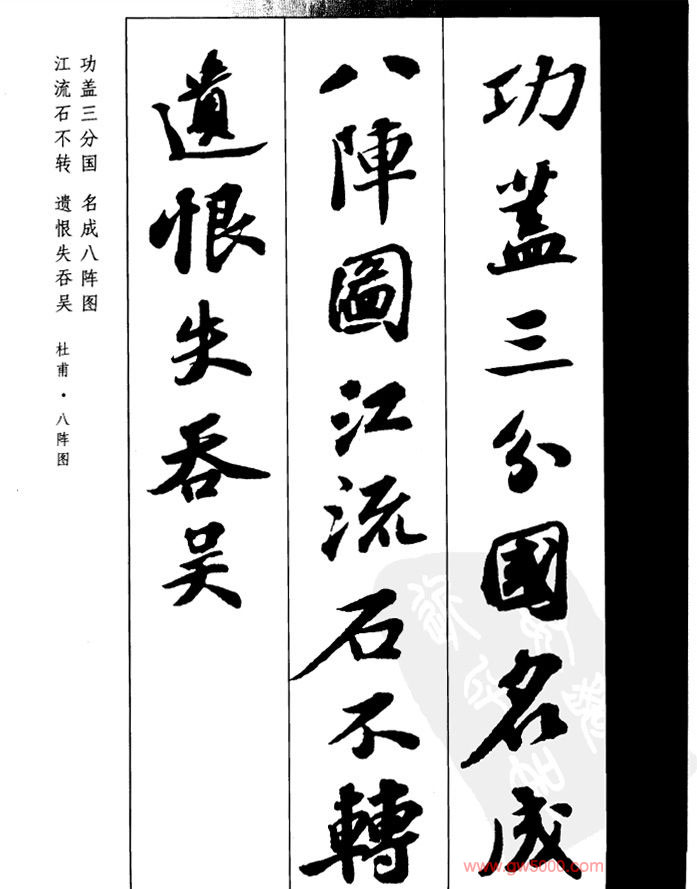 功蓋三分國名成
八陣圖江流石不轉
遺恨失吞吴
功盖三分国 名成八阵图
江流石不转 遗恨失吞吴
杜甫·八阵图
www.gw5000.com